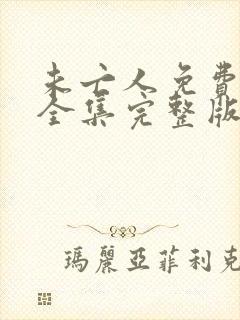 未亡人免費
全集完整版
瑪麗亞菲利克